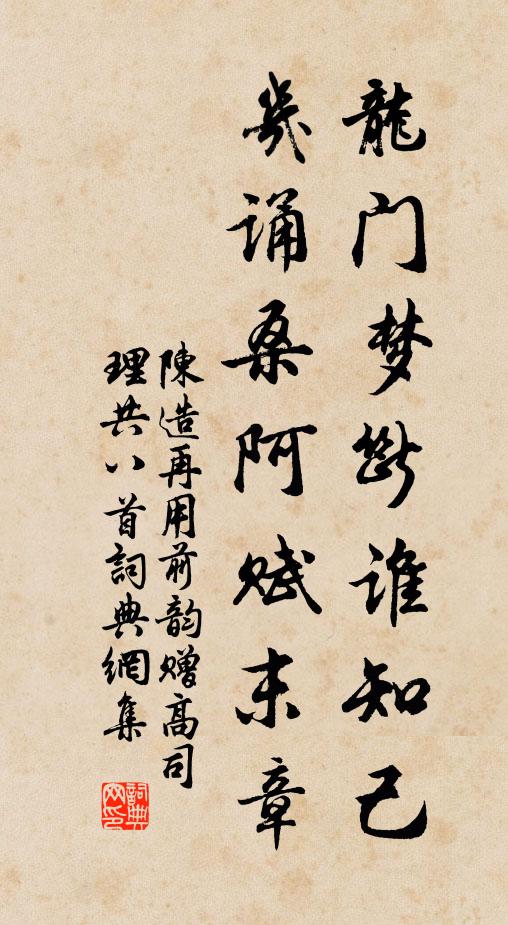 龍门梦斷谁知己
幾诵桑阿赋末章
陳造再用前韵贈高司
理共八首詞典網集
詞典
网印